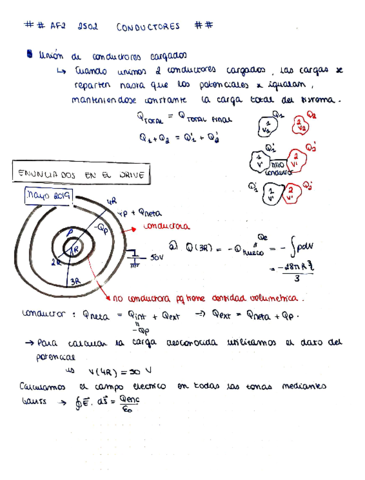 ## AF2 2502 CONDUCTORES ##
Unión de conductores cargados
↳ Cuando unimos 2 conductores cargados, las cargas se
reparten hasta que los potenciales se igualan,
manteniendose constante la carga total del sistema.
Q TOTAL = Q TOTAL FINAL
Q₁ + Q₂ = Q₁' + Q₂'
Q₁ Q₂
1 V₁ 2 V₂
Q₁' Q₂'
1 V' hilo conductor 2 V'
Q₁' Q₂'
1 V' 2 V'
ENUNCIADOS EN EL DRIVE
Mayo 2019
4R
+Qneta
-Qρ
conductora
ρ
R
2R
3R
50V
a) Q(3R) = -Q hueco = -∫ρdV
3
no conductora pq tiene densidad volumetrica.
conductor : Qneta = Qint + Qext → Qext = Qneta + Qρ.
-Qρ
→ Para calcular la carga desconocida utilizamos el dato del
potencial
↳ V(4R) = 50 V
Calculamos el campo electrico en todas las zonas mediante
Gauss → ∮E⃗ · dS⃗ = Qenc/ε₀